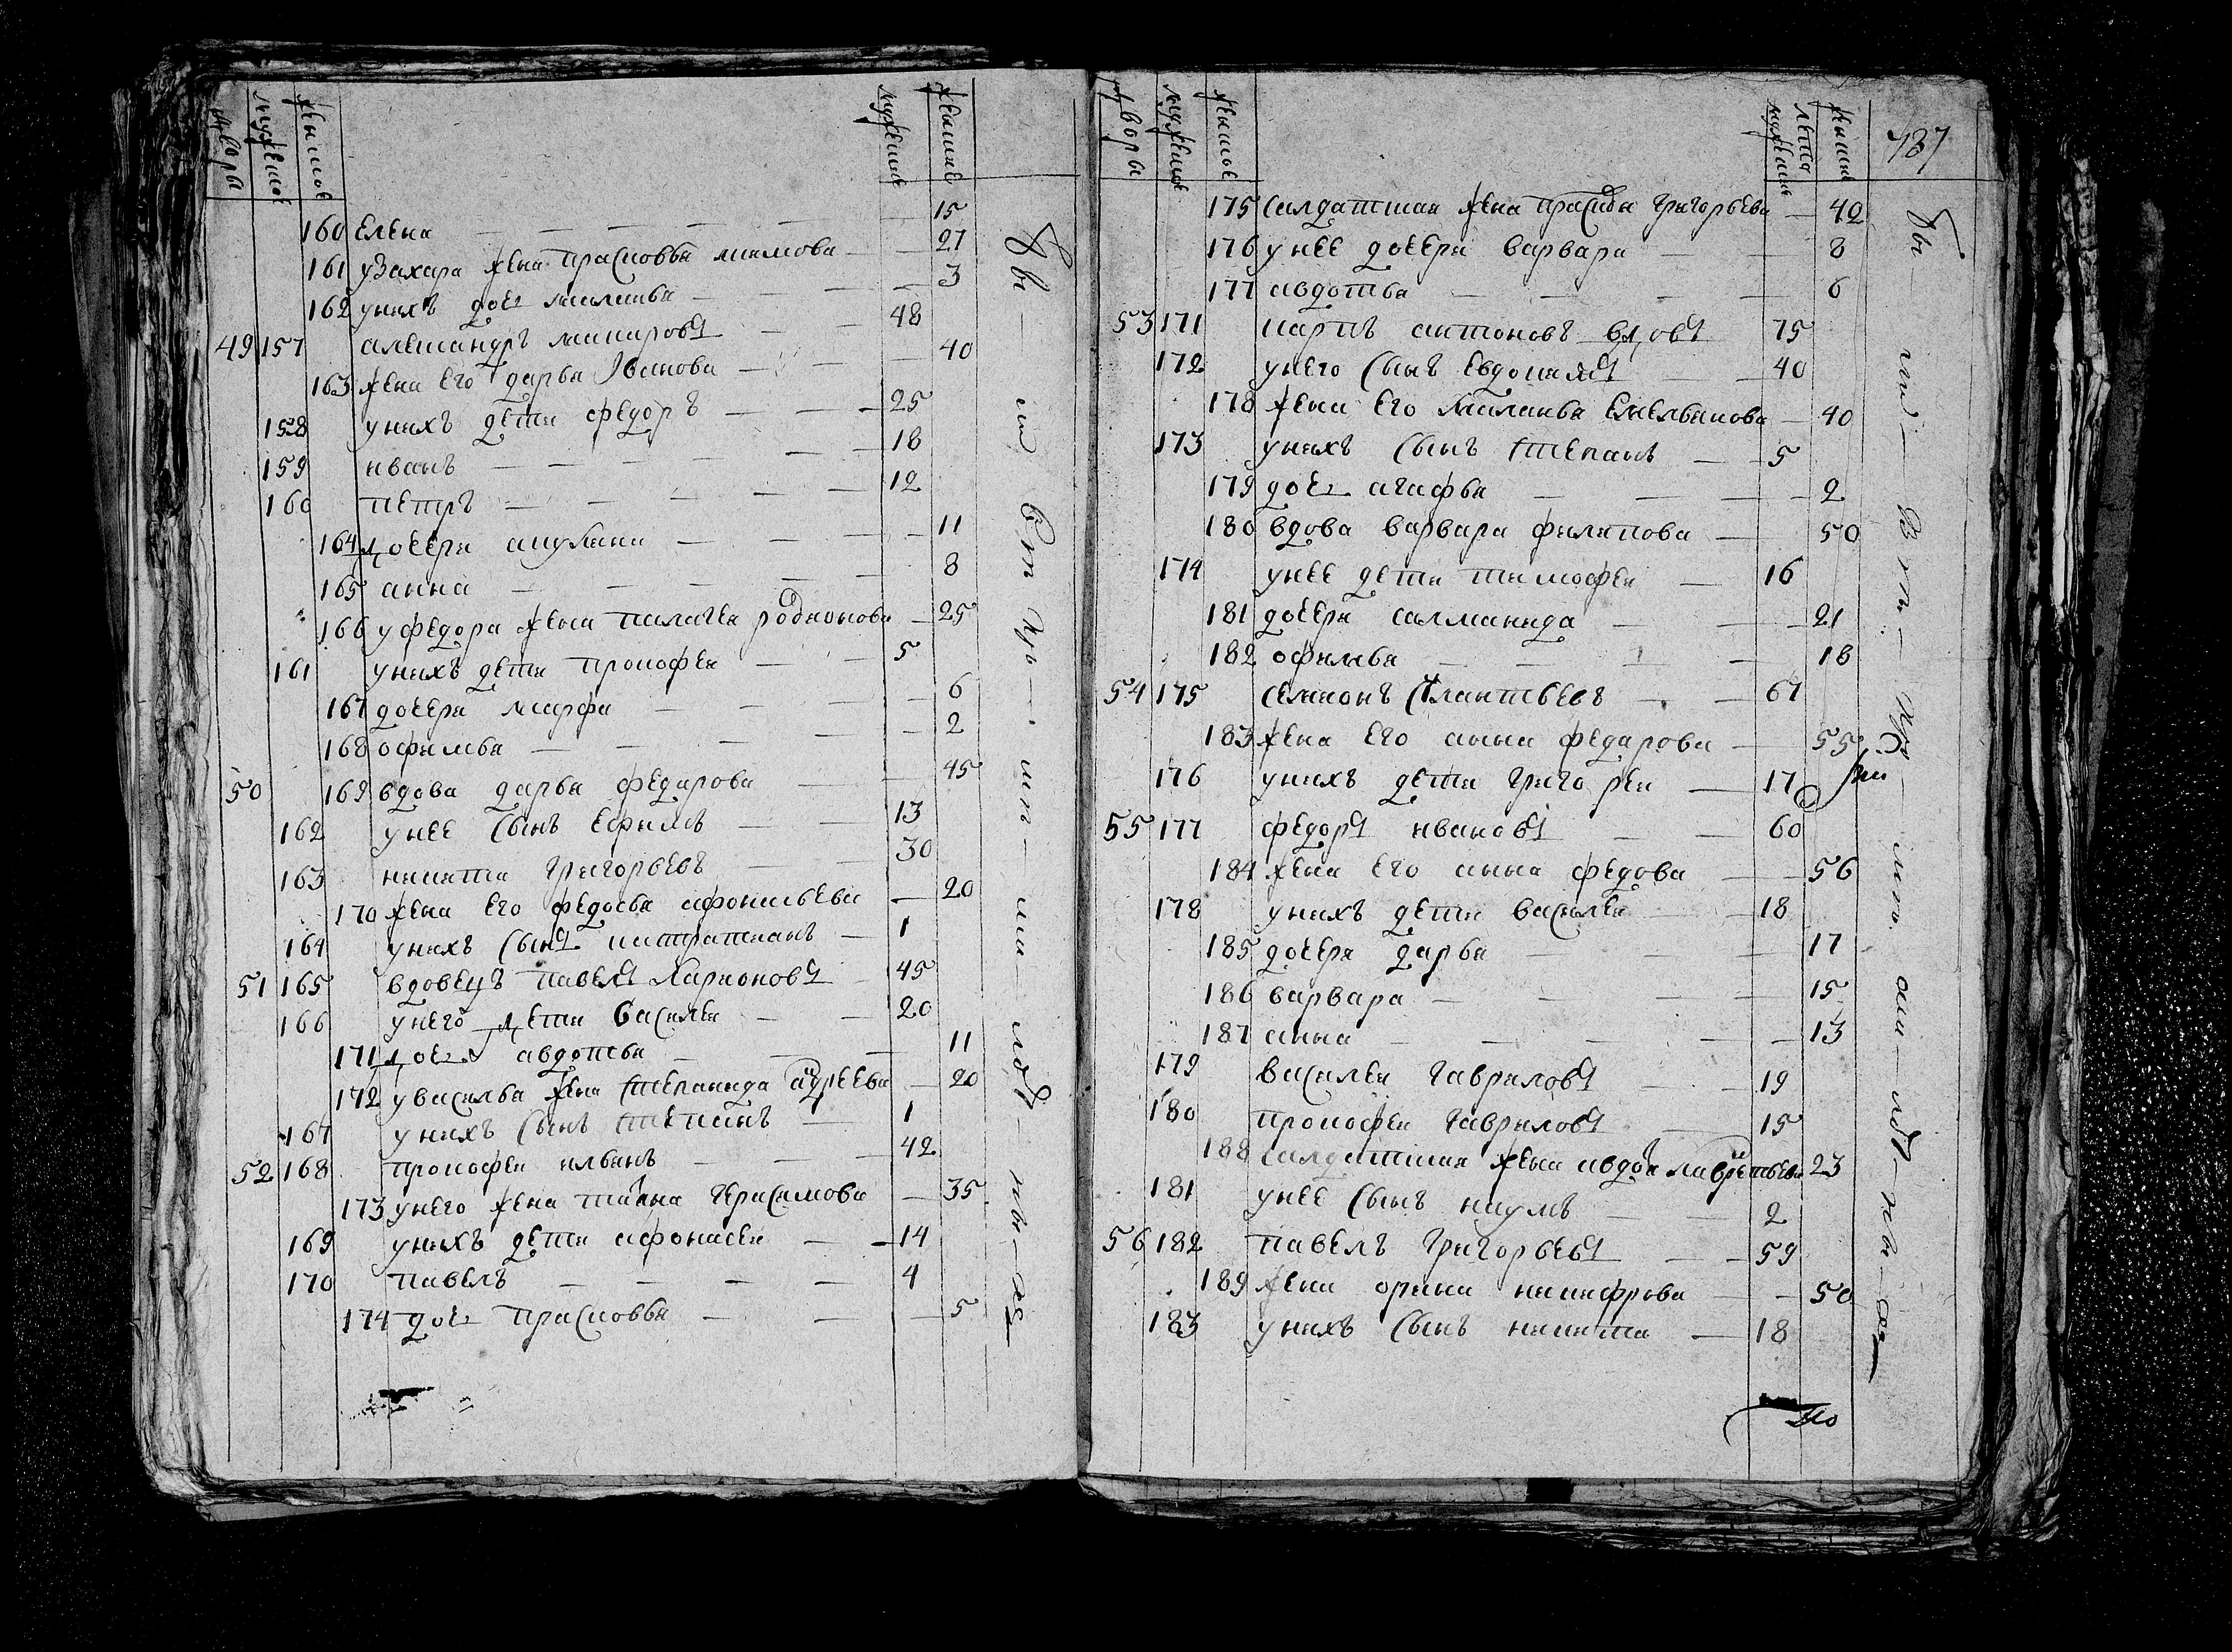 дворы мужеска женска мужеска женска
160 елена 15
161 у захара жена прасковья акимова 27
162 у них доч маланья 3
49 157 александръ макаровъ 48
163 жена его дарья иванова 40
158 у нихъ дети федоръ 25
159 иванъ 18
160 петръ 12
164 дочери акулина 11
165 анна 8
166 у федора жена палагея родионова 25
161 у нихъ дети прокофеи 5
167 дочери марфа 6
168 офимья 2
50 169 вдова дарья федарова 45
162 у нее сынъ ефимъ 13
163 никита григорьевъ 30
170 жена его федосья афонасьева 20
164 у нихъ сынъ 1
51 165 вдовецъ павелъ ларионовъ 45
166 у него дети василеи 20
171 доч авдотья 11
172 у василья жена степанида андреева 20
167 у нихъ сынъ степанъ 1
52 168 прокофеи 42
173 у него жена татиана герасимова 35
169 у нихъ дети афонасеи 14
170 павелъ 4
174 доч прасковья 5
дворы мужеска женска лета мужеска женска
787
175 салдатская жена григорьева 42
176 у нее дочери варвара 8
177 авдотья 6
53 171 карпъ антоновъ вдовъ 75
172 у него сынъ евдокимъ 40
178 жена его маланья емельянова 40
173 у нихъ сынъ степанъ 5
179 доч агафья 2
180 вдова варвара филипова 50
174 у нее дети тимофеи 16
181 дочери салманида 21
182 офимья 18
54 175 семионъ 67
183 жена его анна федарова 55
176 у нихъ дети григореи 17
55 177 федоръ ивановъ 60
184 жена его анна федова 56
178 у нихъ дети василеи 18
185 дочери дарья 17
186 варвара 15
187 анна 13
179 василеи гавриловъ 19
180 прокофеи гавриловъ 15
188 салдатская жена авдотя лаврентьева 23
181 у нее сынъ наумъ 2
56 182 павелъ григорьевъ 59
189 жена орина никифрова 50
183 у нихъ сынъ никита 18